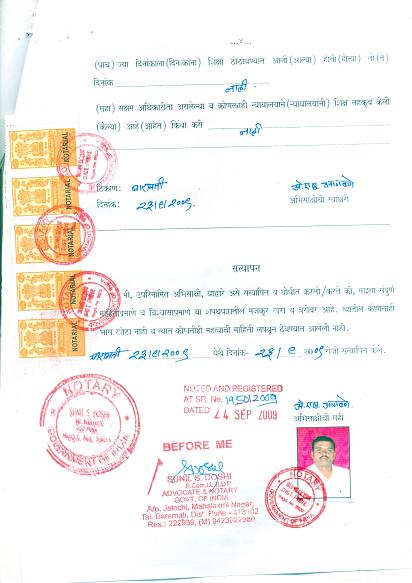 ...४...
(पाच) ज्या दिनांकाला (दिनांकांना) शिक्षा ठोठावण्यात आली (आल्या) होती (होत्या) तो (ते)
दिनांक नाही
(सहा) सक्षम अधिकारीता असलेल्या व कोणत्याही न्यायालयाने (न्यायालयांनी) शिक्षा तहकूब केली
(केल्या) आहे (आहेत) किंवा कसे नाही
NOTARIAL
NOTARIAL
NOTARIAL
NOTARIAL
NOTARIAL
ठिकाण: बारामती
दिनांक: २३/९/२००९
अभिसाक्षीची स्वाक्षरी
सत्यापन
मी, उपरिनामित अभिसाक्षी, याद्वारे असे सत्यापित व घोषीत करतो/करते की, माझ्या संपूर्ण
माहितीप्रमाणे व विश्वासाप्रमाणे या शपथपत्रातील मजकूर खरा व बरोबर आहे. त्यातील कोणताही
भाग खोटा नाही व त्यात कोणतीही महत्वाची माहिती लपवून ठेवण्यात आलेली नाही.
बारामती २३/९/२००९ येथे दिनांक- २३/९ २००९ रोजी सत्यापित केले.
अभिसाक्षीची सही
NOTARY
SUNIL S. DOSHI
GOVERNMENT OF INDIA
NOTED AND REGISTERED
AT SR. No. 1950/2009
DATED 24 SEP 2009
BEFORE ME
SUNIL S. DOSHI
B.Com.LL.B.DTP
ADVOCATE & NOTARY
GOVT. OF INDIA
A/p. Jalochi, Mahalaxmi Nagar,
Tal. Baramati, Dist Pune - 413102
Res.: 222939, (M) 9423022980
NOTARY
GOVERNMENT OF INDIA